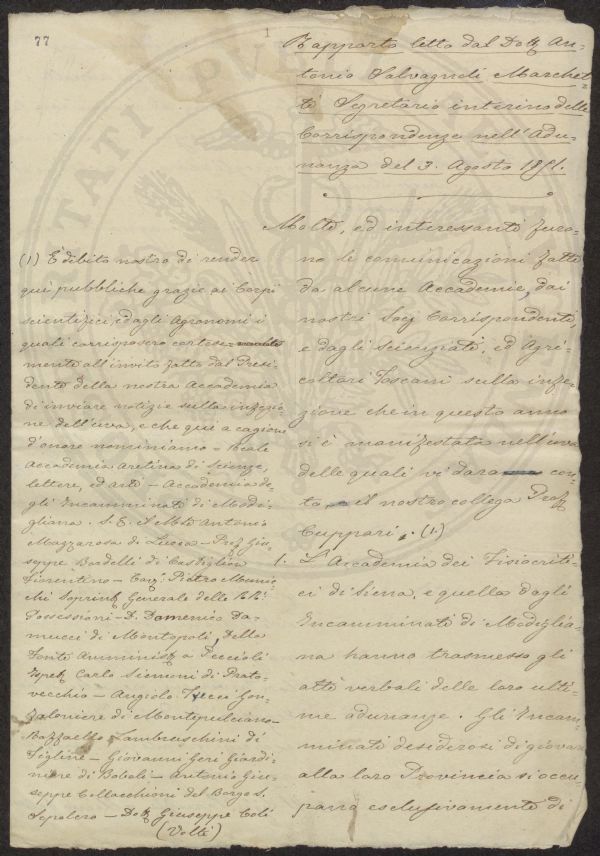 77
1
Rapporto letto dal Dott An-
tonio Salvagnoli Marchet-
ti Segretario interino delle
Corrispondenze nell'Adu-
nanza del 3. Agosto 1851.
Molte, ed interessanti furo-
no le comunicazioni fatte
da alcune Accademie, dai
nostri Socj Corrispondenti,
e dagli scienziati, ed Agri-
coltori Toscani sulla infe-
zione che in questo anno
si è manifestata nell'uva
delle quali vi darà con-
to il nostro collega Prof
Cuppari. (1.)
1. L'Accademia dei Fisiocriti-
ci di Siena, e quella degli
Incamminati di Modiglia-
na hanno trasmesso gli
atti verbali delle loro ulti-
me adunanze. Gli Incam-
minati desiderosi di giovare
alla loro Provincia si occu-
parra esclusivamente di
(1) È debito nostro di render
qui pubbliche grazie ai Corpi
scientifici, e dagli Agronomi i
quali corrisposero cortese
mente all'invito fatto dal Presi-
dente della nostra Accademia
di inviare notizie sulla infezio-
ne dell'uva, e che qui a cagione
d'onore nominiamo = Reale
Accademia Aretina di Scienze,
lettere, ed arti — Accademia de-
gli Incamminati di Modi-
gliana. S. E. il Mse Antonio
Mazzarosa di Lucca — Prof Giu-
seppe Bardelli di Castiglion
Fiorentino — Pietro Municchi
Soprint Generale delle RR.
Possessioni — D. Domenico Da-
mucci di Montopoli, Della
Fonte Amminist a Peccioli
Ispet Carlo Siemoni di Prato-
vecchio — Angiolo Gon-
faloniere di Montepulciano —
Raffaello Lambruschini di
Figline — Giovanni Geri Giardi-
niere di Boboli — Antonio Giu-
seppe Collacchioni del Borgo S.
Sepolcro — Dott Giuseppe
(Volti)